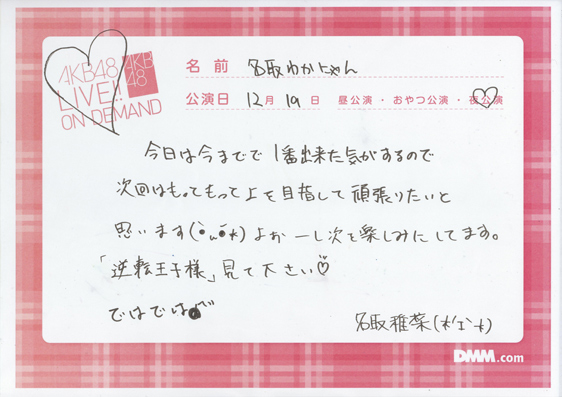 AKB48
LIVE!!
ON DEMAND
AKB
48
名前 名取わかにゃん
公演日 12月19日 昼公演・おやつ公演・夜公演
今日は今までで1番出来た気がするので
次回はもっともっと上を目指して頑張りたいと
思います(•̀ᴗ•́*) よかーし次を楽しみにしてます。
「逆転王子様」見て下さい♡
ではでは
名取稚菜(*'ェ'*)
DMM.com